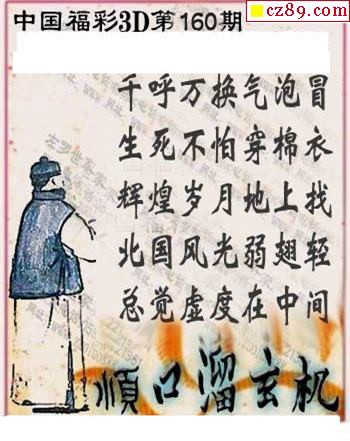 cz89.com
中国福彩3D第160期
千呼万换气泡冒
生死不怕穿棉衣
辉煌岁月地上找
北国风光弱翅轻
总觉虚度在中间
順口溜玄机